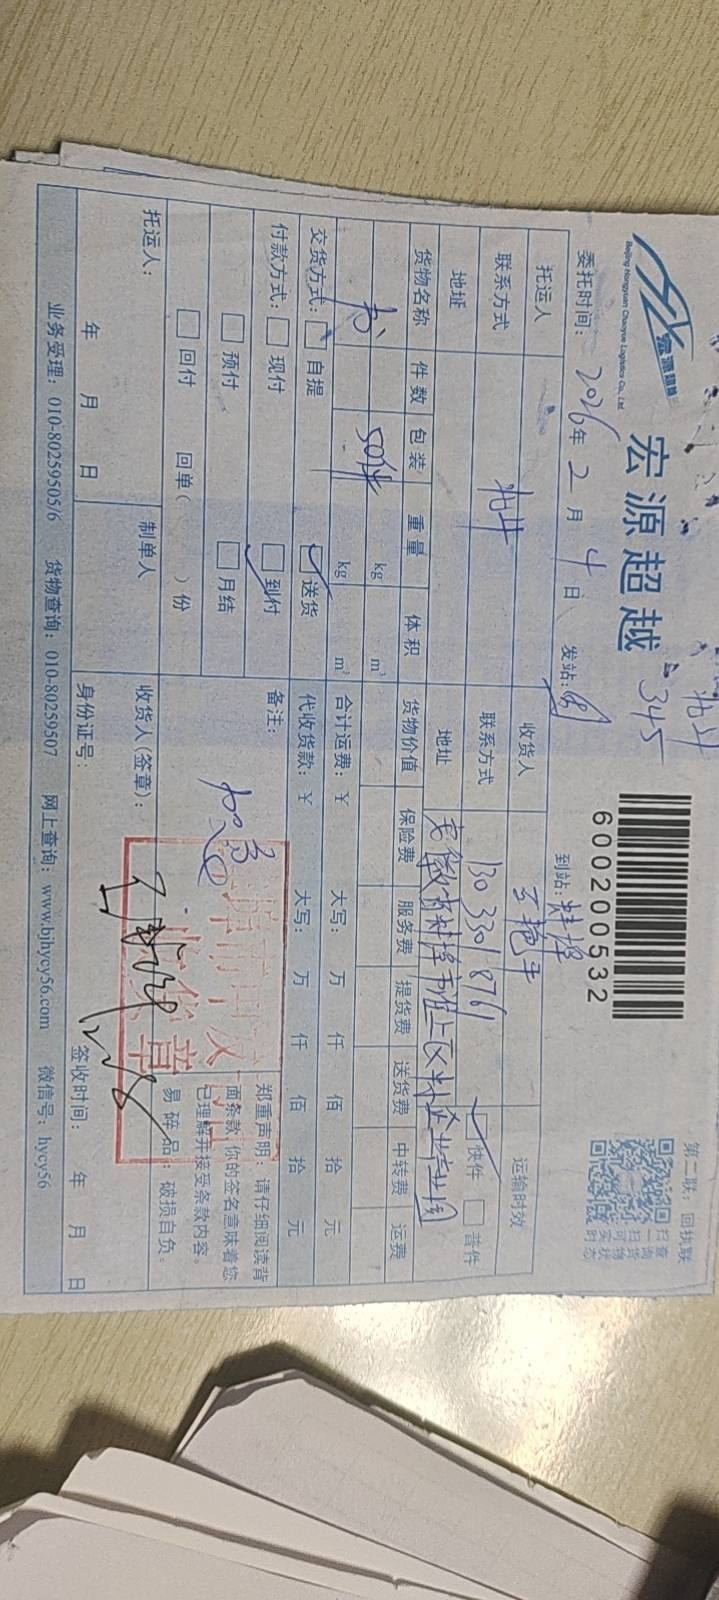 北斗
345
宏源物流
Beijing Hongyuan Chaoyue Logistics Co., Ltd.
宏源超越
600200532
第二联：回执联
扫一扫可实时
查询货物状态
委托时间：2026年2月4日 发站： 到站：蚌埠
托运人 收货人 王艳平 运输时效
联系方式 北斗 联系方式 13033018761 快件 普件
地址 地址 安徽省蚌埠市淮上区
货物名称 件数 包装 重量 体积 货物价值 保险费 服务费 提货费 送货费 中转费 运费
kg m³
书 50件 kg m³ 合计运费：￥ 大写： 万 仟 佰 拾 元
交货方式： 自提 送货 代收货款：￥ 大写： 万 仟 佰 拾 元
付款方式： 现付 到付 备注：
预付 月结 加急
回付 回单（ ）份
郑重声明：请仔细阅读背
面条款，你的签名意味着您
已理解并接受条款内容。
易碎品：破损自负。
托运人： 制单人 收货人(签章)：
收货章
年 月 日 身份证号： 签收时间： 年 月 日
业务受理：010-80259505/6 货物查询：010-80259507 网上查询：www.bjhycy56.com 微信号：hycy56